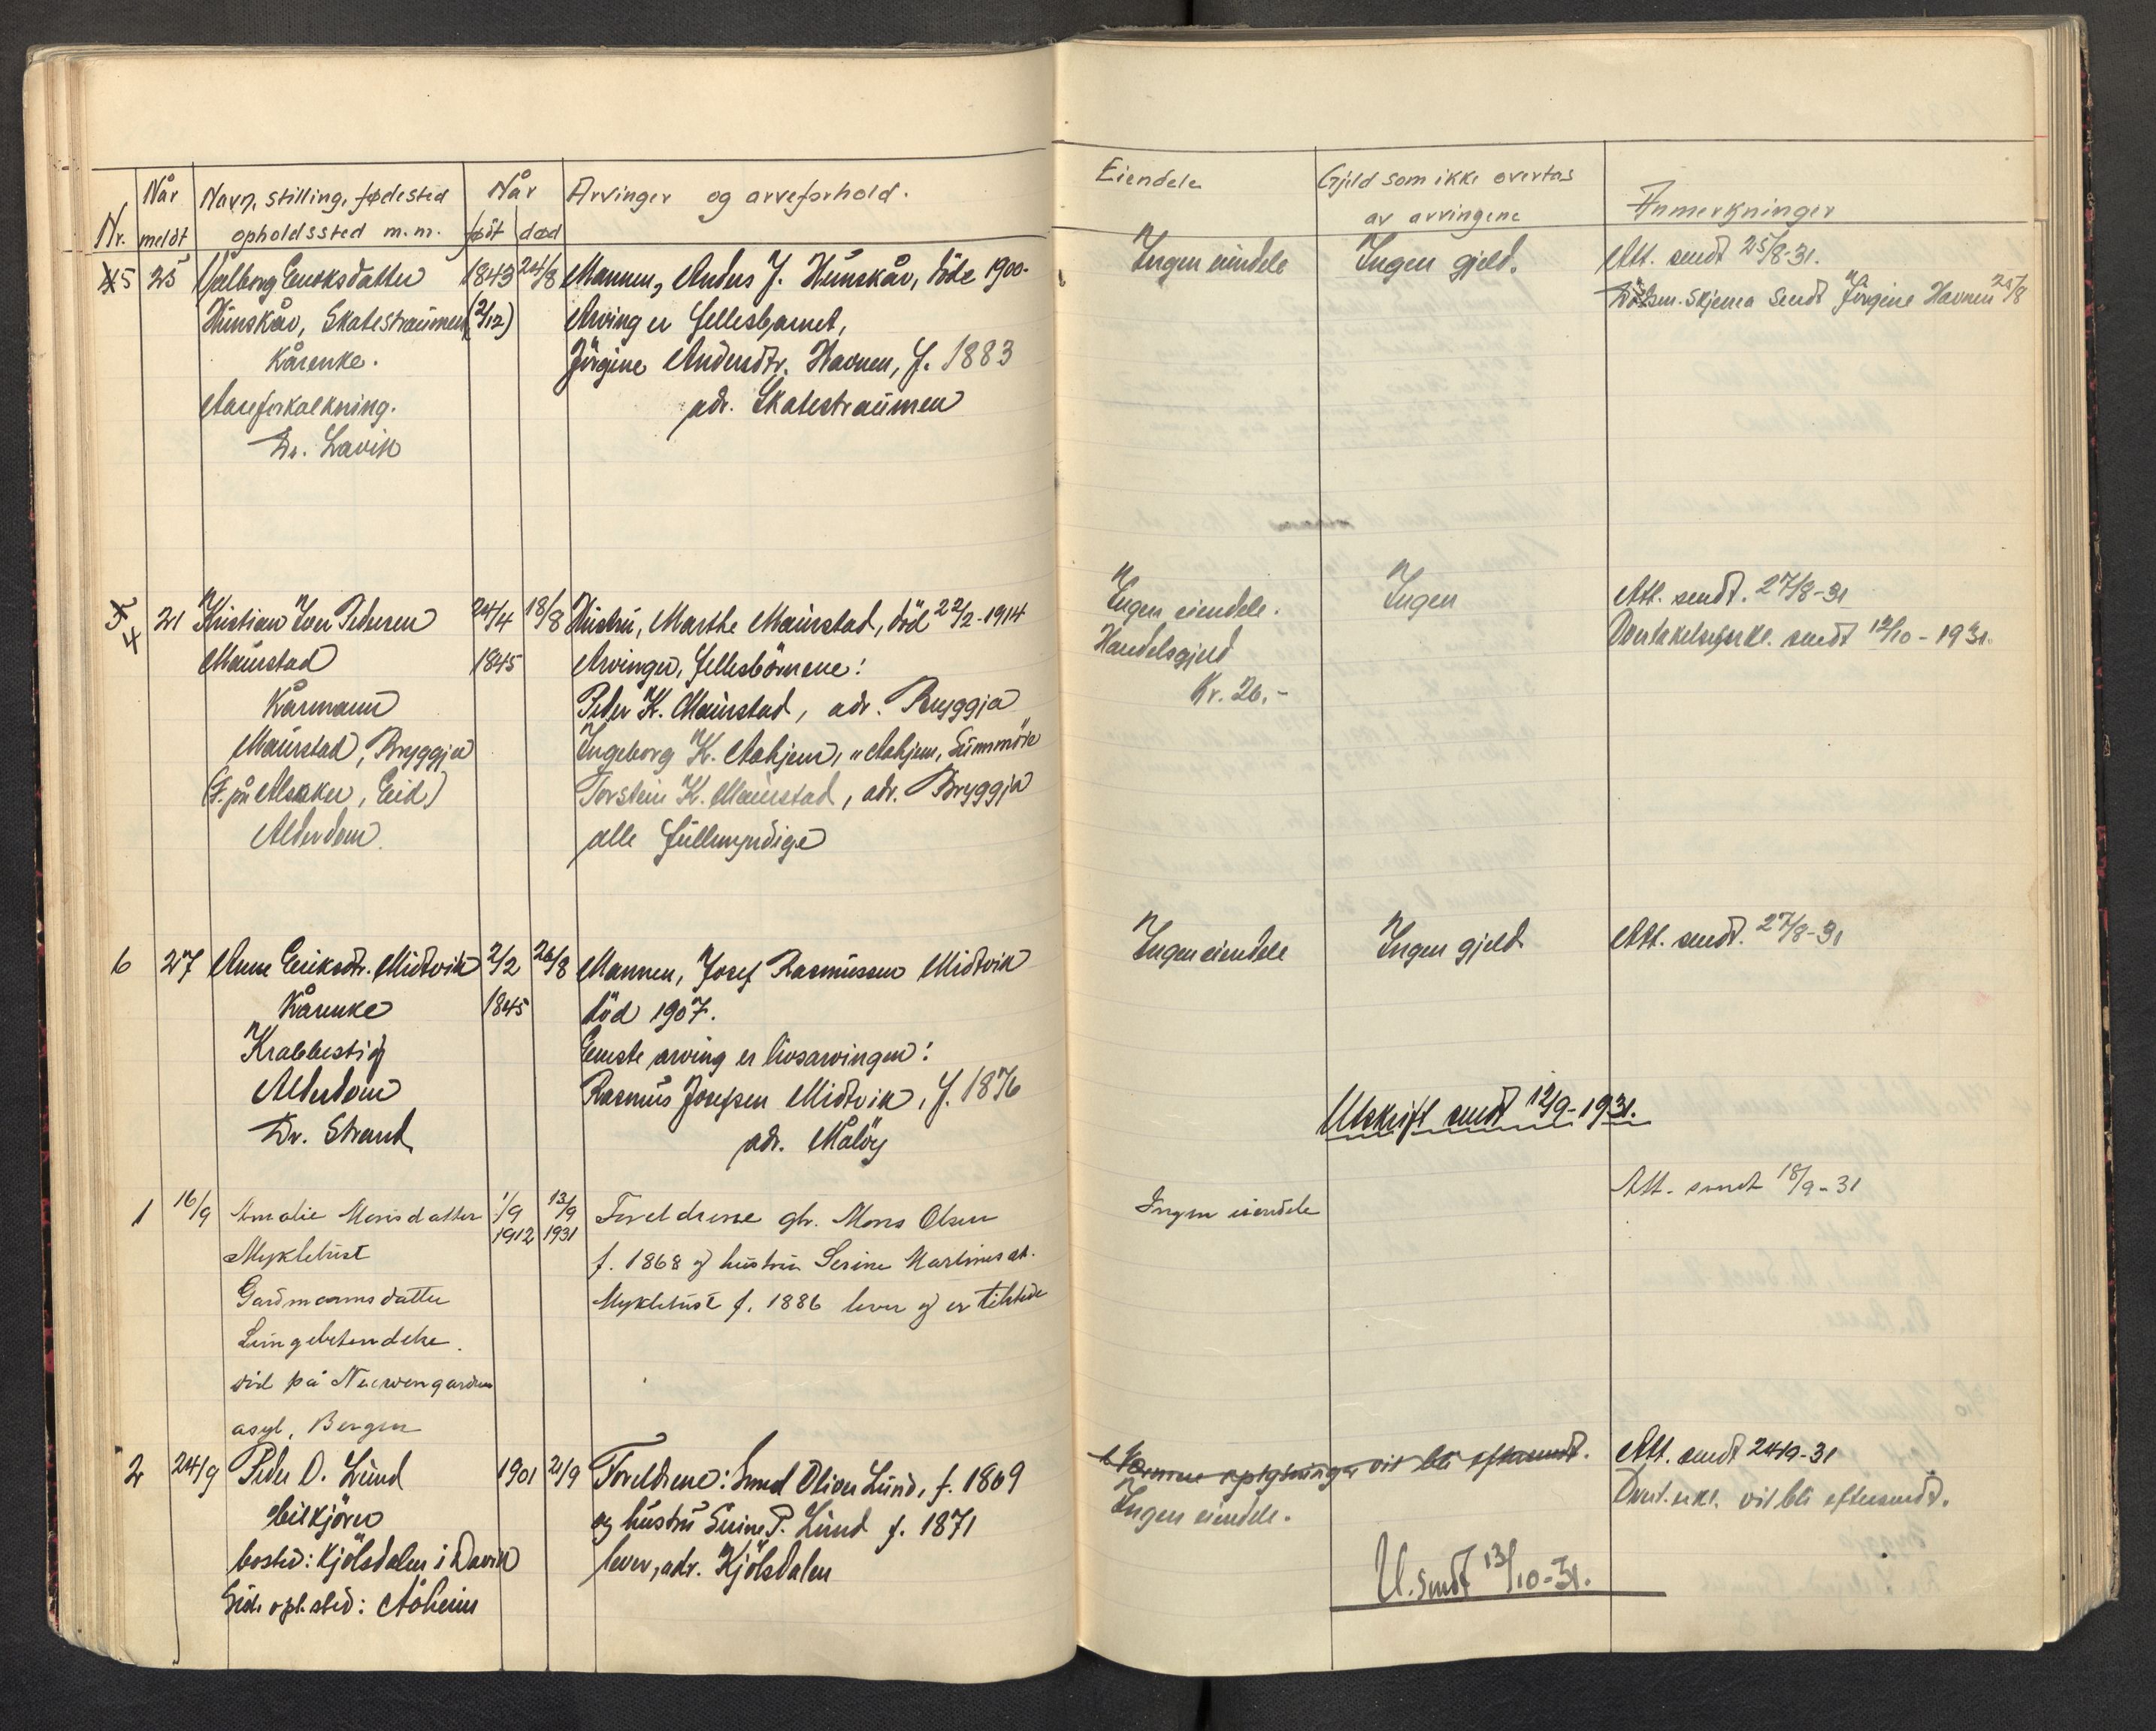 Nr. Når meldt Navn, stilling, fødested opholdssted m.m. Når født død Arvinger og arveforhold. Eiendele Gjeld som ikke overtas av arvingene Anmerkninger
5 25 Valborg Enoksdatter 1843 24/8 Mannen, Anders J. Hunskår, döde 1900- Ingen eiendele Ingen gjeld. Att. sendt 25/8-31.
Hunskår, Skatestraumen (2/12) Arving er fellesbarnet, skjema sendt Jörgine Havnen 25/8
Kårenke. Jörgine Andersdtr. Havnen, f. 1883
Aareforkalkning. adr. Skatestraumen
Dr. Lavik
4 21 Kristian Iver Pedersen 24/4 18/8 Hustru, Marthe Maurstad, död 22/2-1914 Ingen eiendele. Ingen Att. sendt. 27/8-31
Maurstad 1845 Arvinger, fellesbörnene: Handelsgjeld Overtakelseserkl. sendt 12/10-1931.
Kårmann Peder K. Maurstad, adr. Bryggja Kr. 26.-
Maurstad, Bryggja Ingeborg K. Aahjem, " Aahjem, Sunnmöre
(F. på Alsaker, Eid) Torstein K. Maurstad, adr. Bryggja
Alderdom. alle fullmyndige
6 27 Anne Eriksdtr. Midtvik 2/2 26/8 Mannen, Josef Rasmussen Midtvik Ingen eiendele Ingen gjeld Att. sendt. 27/8-31
Kårenke 1845 död 1907.
Krabbestig Eneste arving er livsarvingen:
Alderdom Rasmus Josefsen Midtvik, f. 1876
Dr. Strand adr. Målöy
Utskrift sendt 12/9-1931.
1 16/9 Amalie Monsdatter 1/9 13/9 Foreldrene gbr. Mons Olsen Ingen eiendele Att. sendt 18/9-31
Myklebust 1912 1931 f. 1868 og hustru Serine Martinusdt.
Gardmannsdatter Myklebust f. 1886 lever og er tilstede
Lungebetendelse.
död på Neevengarden
asyl, Bergen
2 24/9 Peder O. Lund 1901 21/9 Foreldrene: Smed Oliver Lund, f. 1869 Nærmere oplysninger vil bli eftersendt. Att. sendt 24/9-31
bilkjörer og hustru Serine P. Lund f. 1871 Ingen eiendele. Overt.erkl. vil bli eftersendt.
bosted: Kjölsdalen i Davik lever, adr. Kjölsdalen
Sid. opl.sted: Åheim
U. sendt 13/10-31.